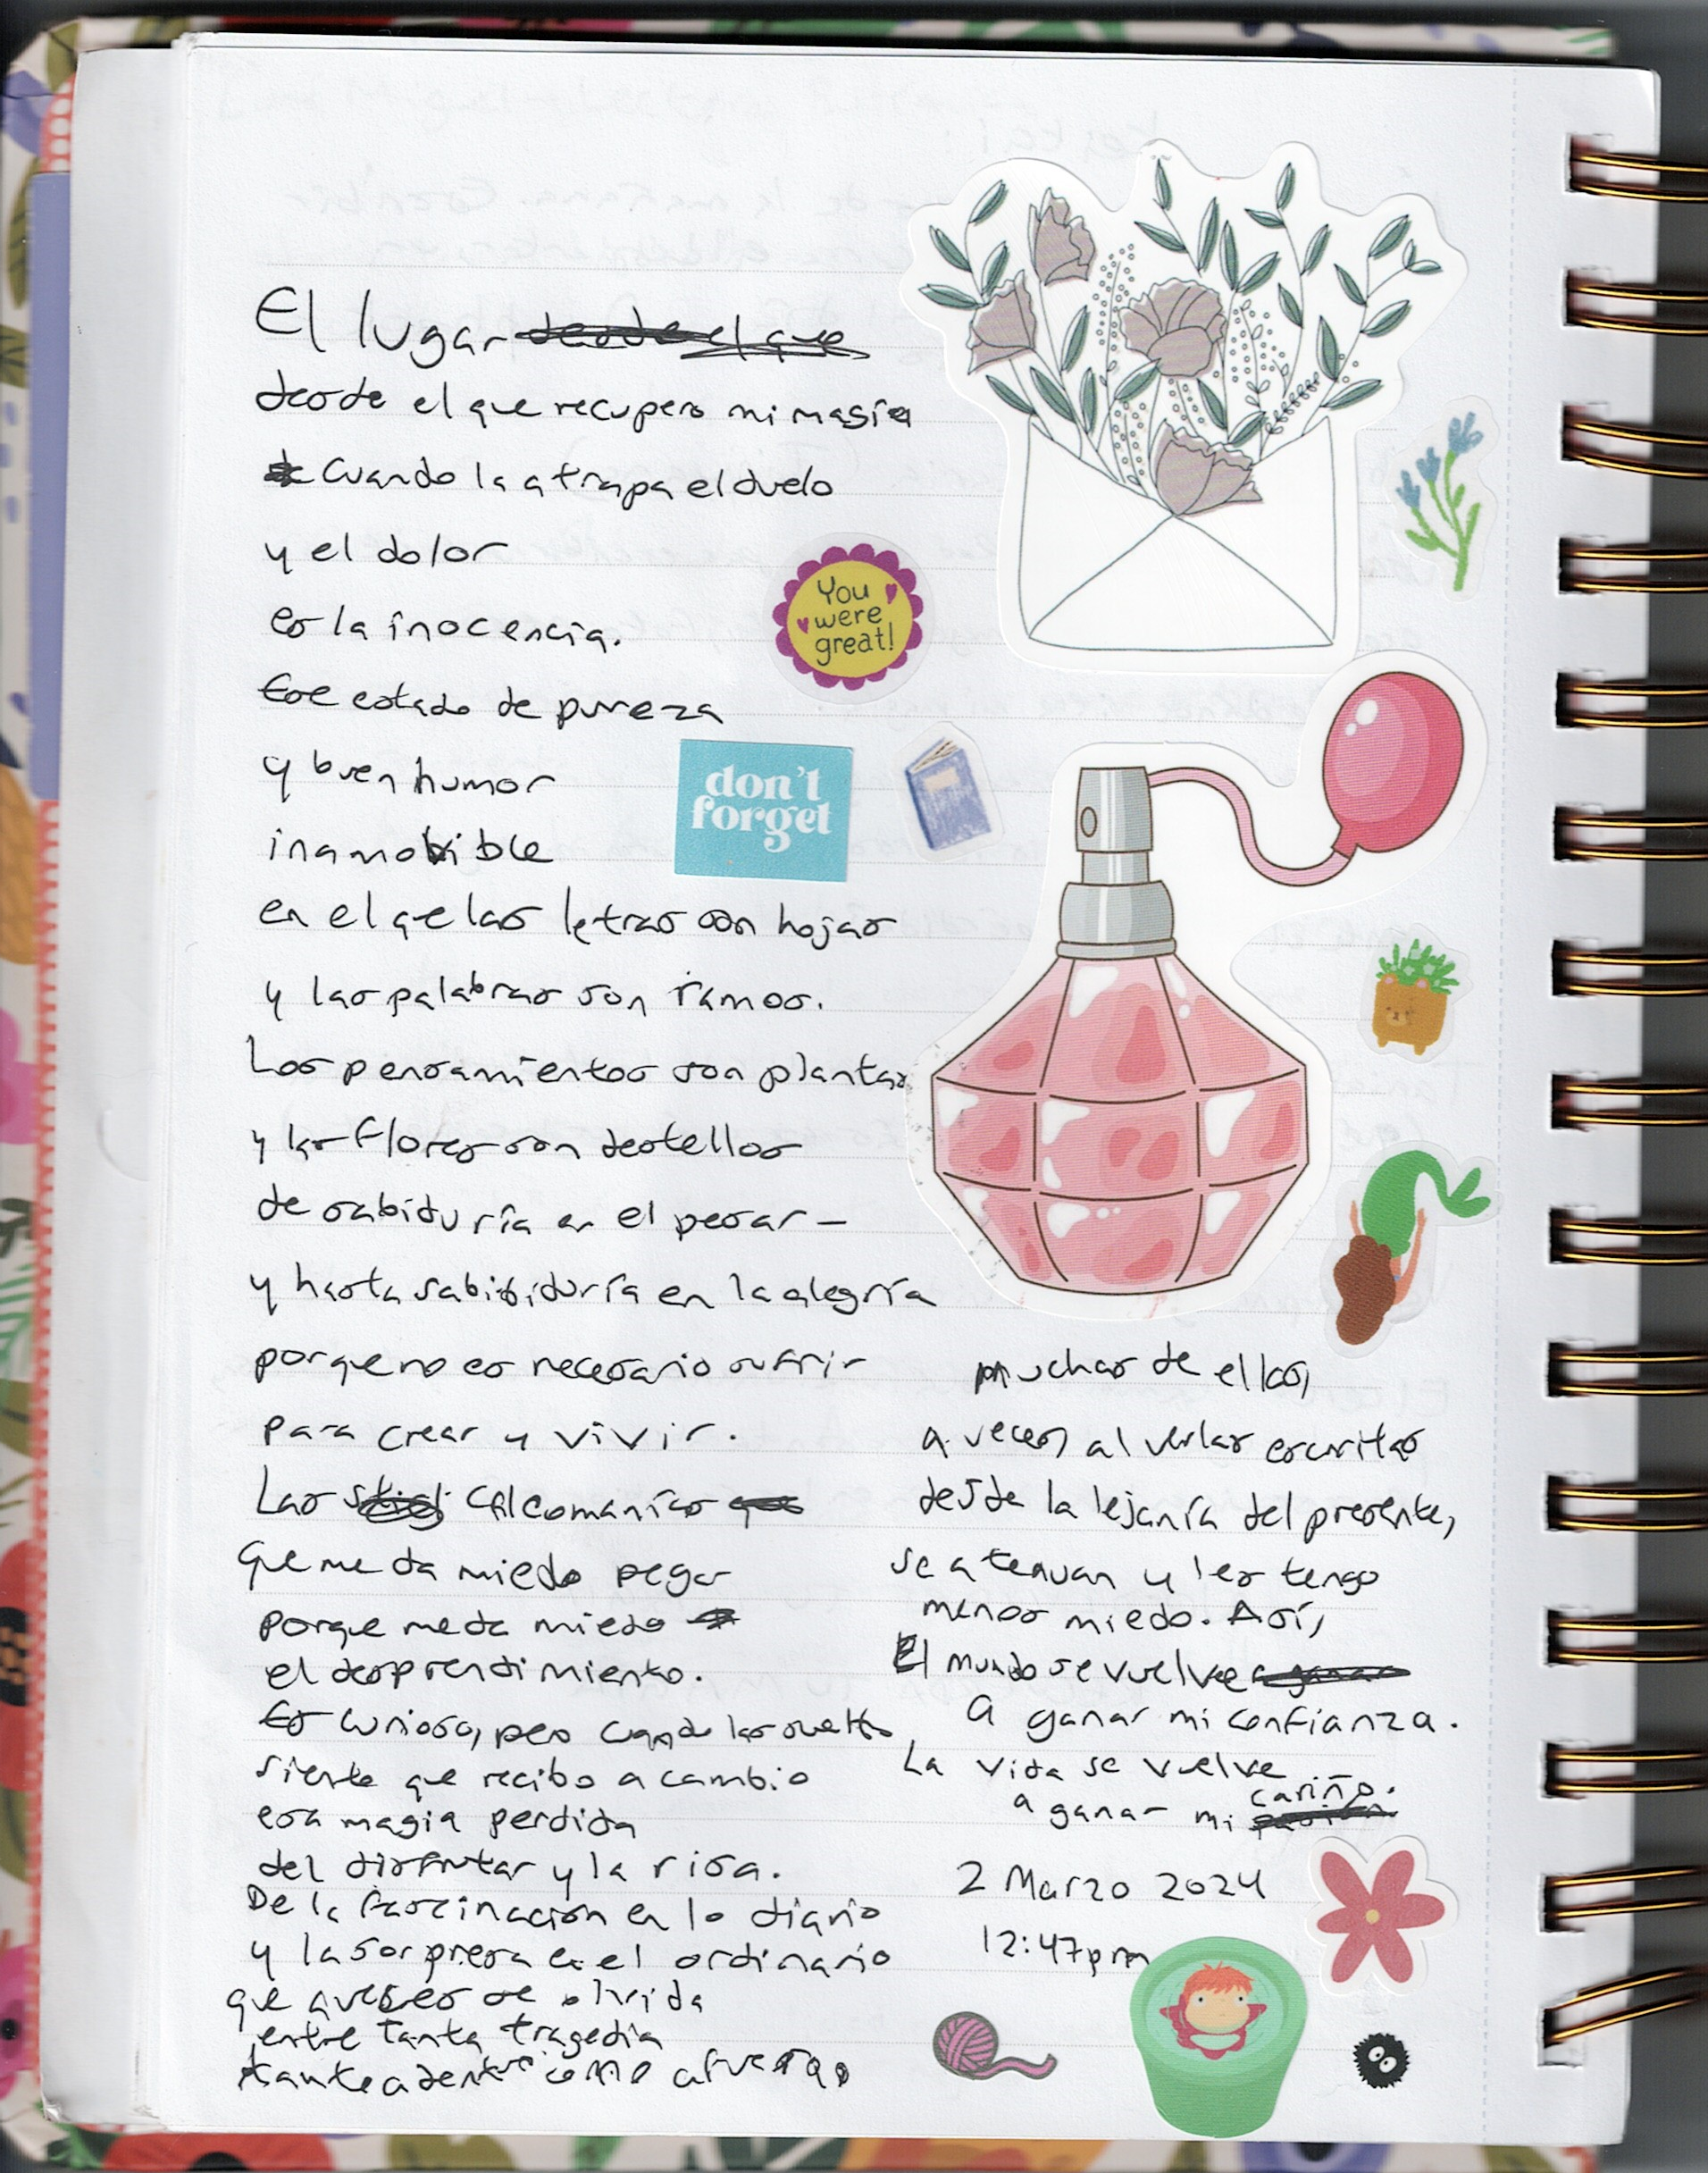 El lugar desde el que
desde el que recupero mi masía
Cuando la atrapa el duelo
y el dolor
es la inocencia.
Ese estado de pureza
y buen humor
inamovible
en el qe las letras son hojas
y las palabras son ramos.
Los pensamientos son plantas
y las flores son destellos
de sabiduría en el pesar –
y hasta sabiduría en la alegría
porque no es necesario sufrir
para crear y vivir.
Las calcomanías que
que me da miedo pegar
porque me da miedo
el desprendimiento.
Es curioso, pero cuando las suelto
siento que recibo a cambio
esa magia perdida
del disfrutar y la risa.
De la fascinación en lo diario
y la sorpresa en el ordinario
que a veces se olvida
entre tanta tragedia
tanto adentro como afuera
You
were
great!
don't
forget
muchas de ellas,
a veces, al verlas escritas
desde la lejanía del presente,
se atenuan y les tengo
menos miedo. Así,
El mundo se vuelve a ganar
a ganar mi confianza.
La vida se vuelve
a ganar mi pasión cariño.
2 Marzo 2024
12:47pm